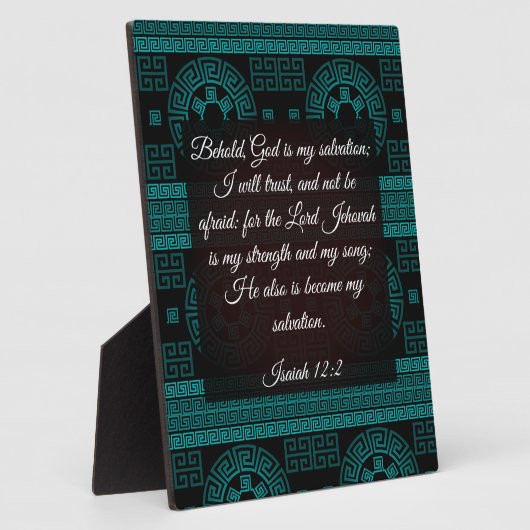 Behold, God is my salvation;
I will trust, and not be
afraid: for the Lord Jehovah
is my strength and my song;
He also is become my
salvation.
Isaiah 12:2